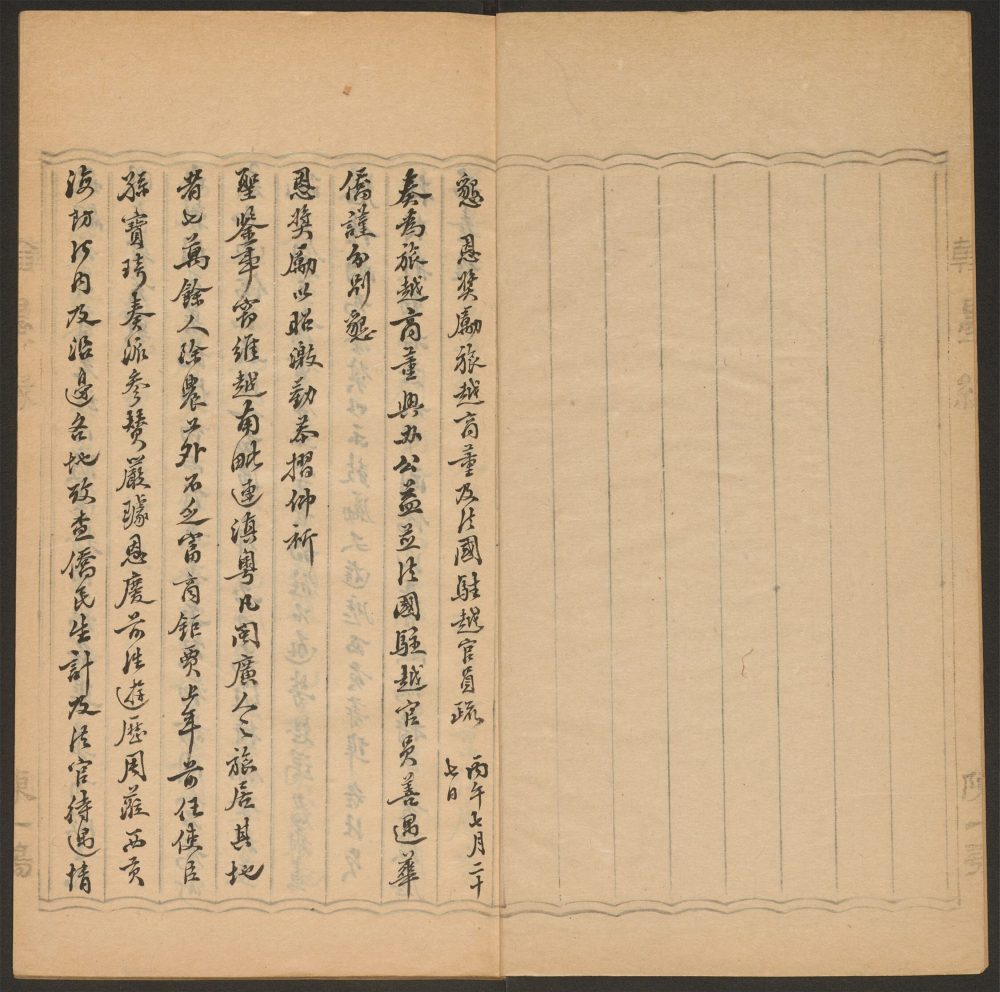 懇 恩獎勵旅越商董及法國駐越官員疏 丙午七月二十
七日
奏為旅越商董興办公益並法國駐越官員善遇華
僑謹分別懇
恩獎勵以昭激勸恭摺仰祈
聖鑒事竊維越南毗連滇粵凡閩廣人之旅居其地
者七萬餘人除農工外不乏富商鉅賈上年前任使臣
孫寶琦奏派參贊嚴璩恩慶前往遊歷周蒞西貢
海防河內及沿邊各地攷查僑民生計及法官待遇情